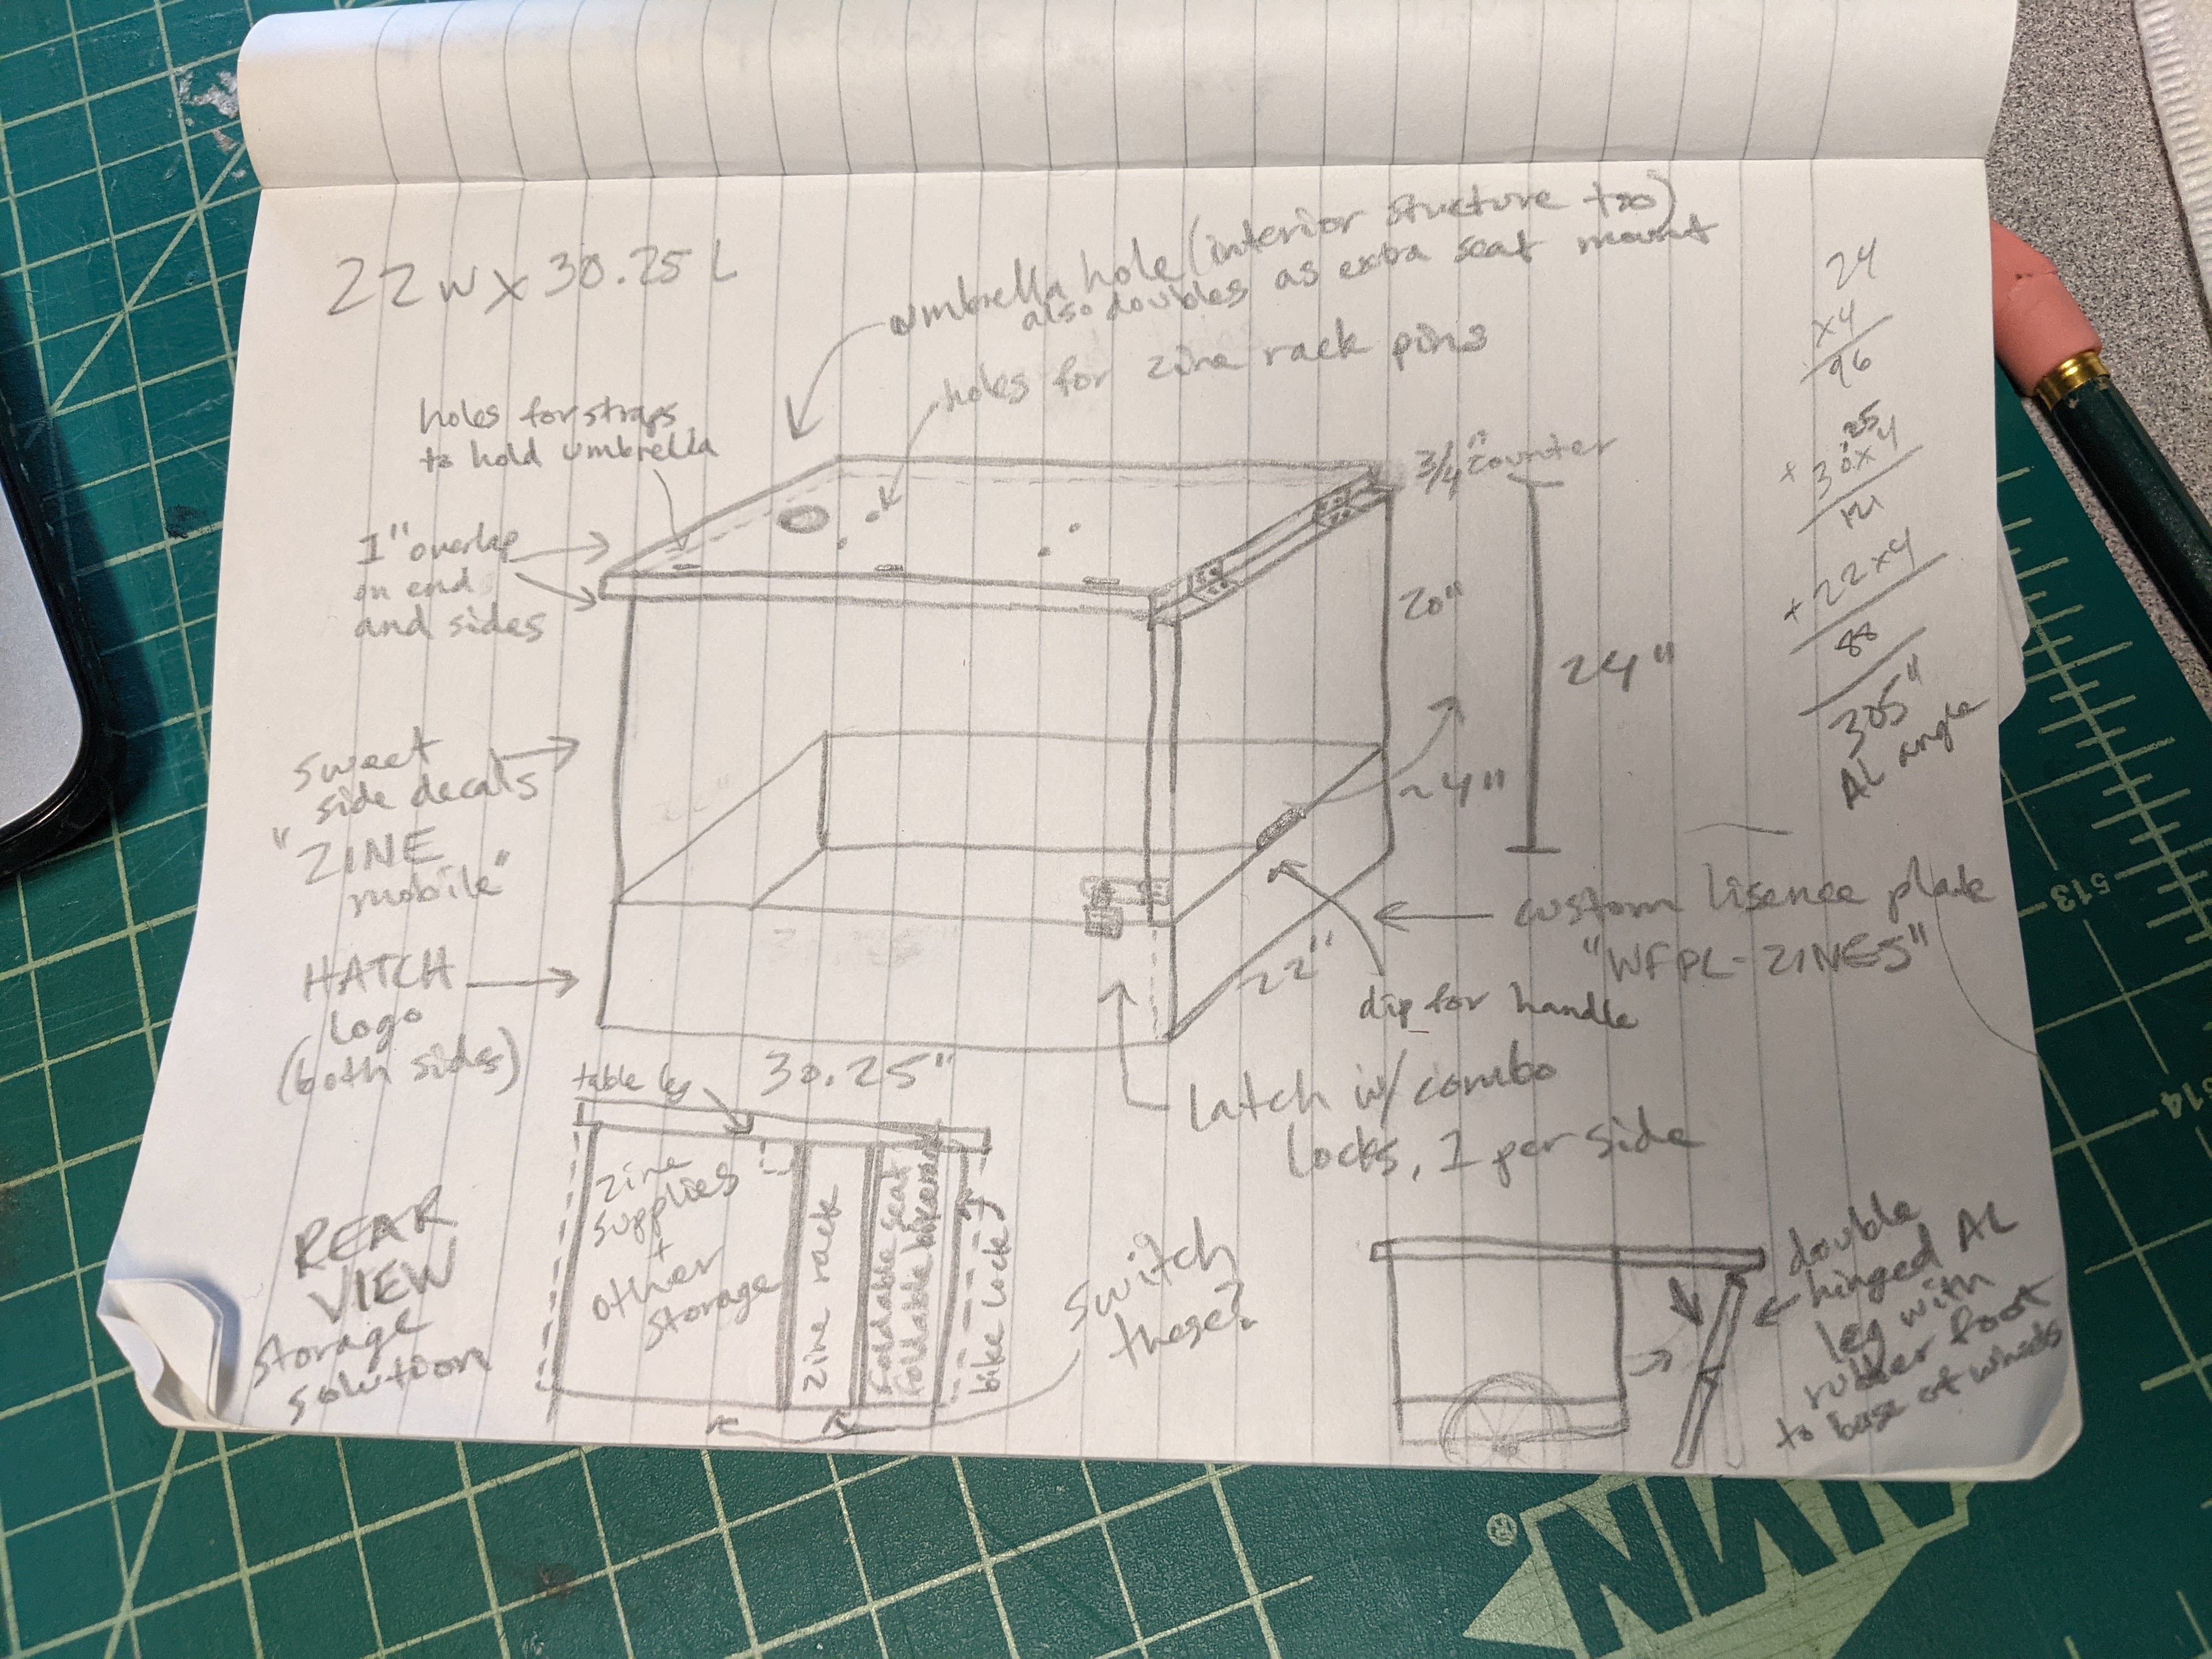 22 w x 30.25 L
umbrella hole (interior structure too)
also doubles as extra seat mount
holes for zine rack pins
holes for straps
to hold umbrella
3/4" counter
1" overlap
on end
and sides
20"
24"
sweet
side decals
"ZINE
mobile"
4"
HATCH
logo
(both sides)
custom lisence plate
"WFPL-ZINES"
22"
dip for handle
30.25"
latch w/ combo
locks, 1 per side
24
x4
96
+ 30.25 x 4
121
+ 22 x 4
88
305"
AL angle
table leg
REAR
VIEW
storage
solution
zine
supplies
+
other
storage
zine rack
foldable seat
bike lock
switch
these?
double
hinged AL
leg with
rubber foot
to base of wheels
513
514
®